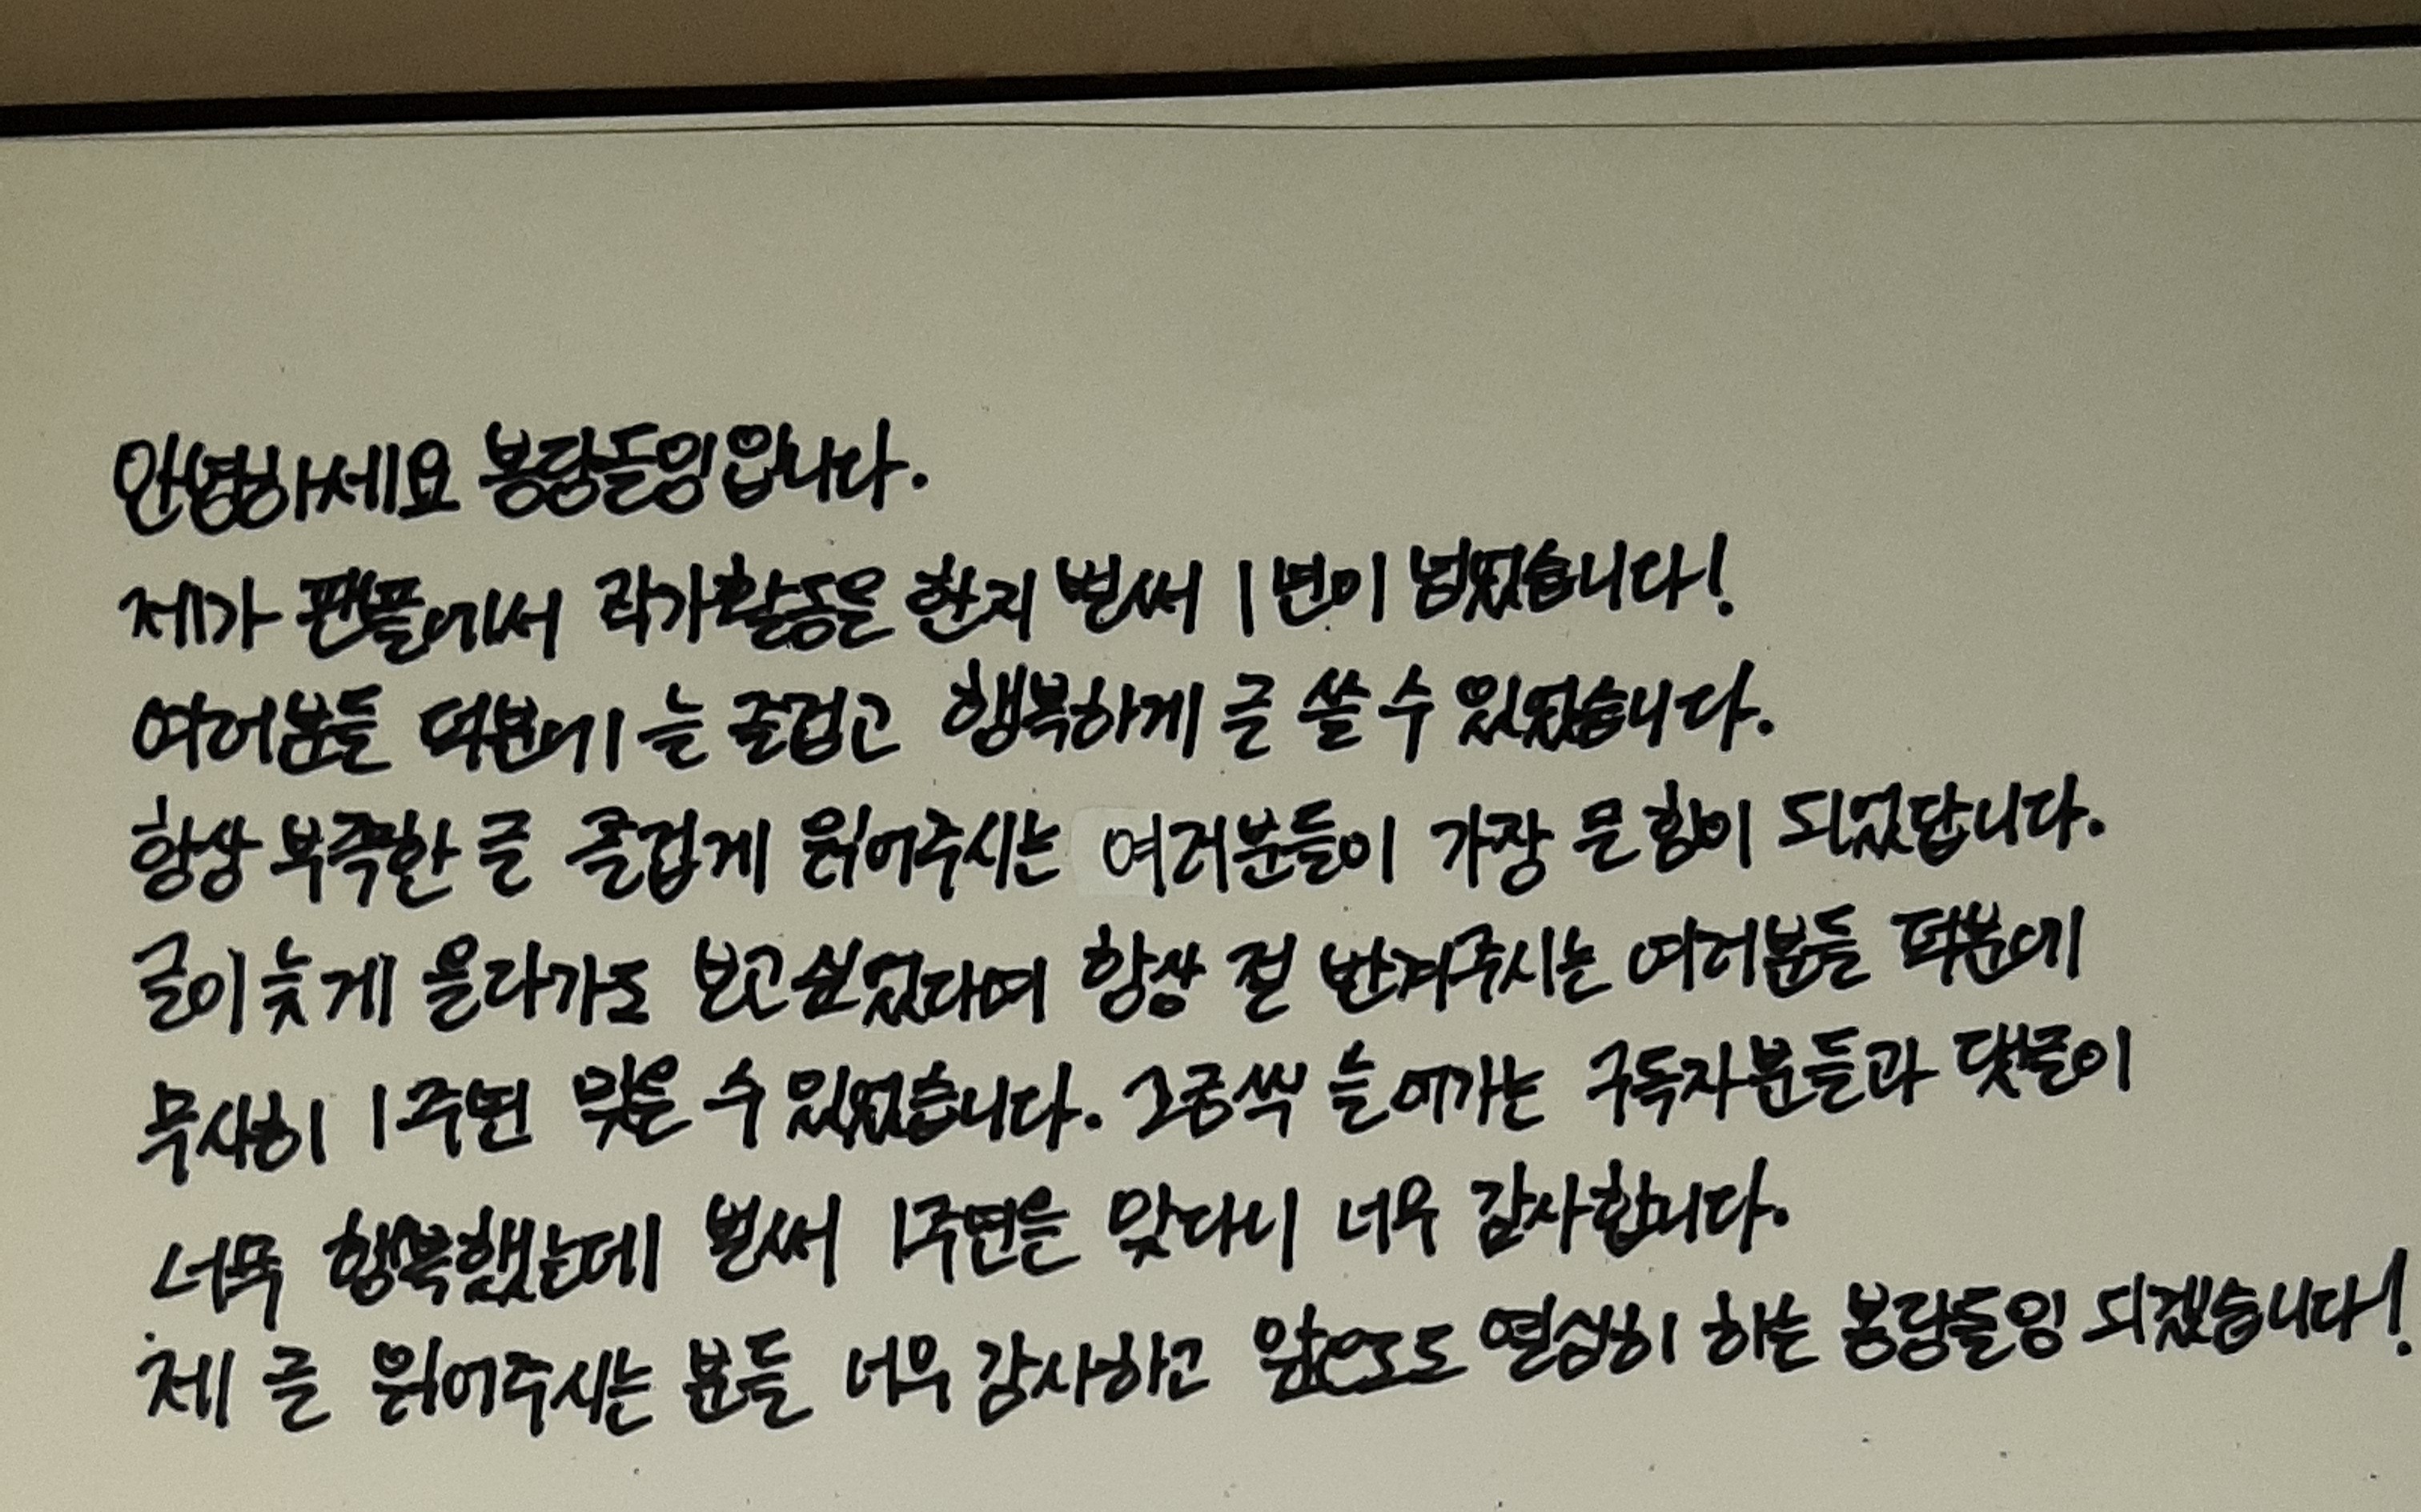 안녕하세요 봉당돌잉입니다.
제가 팬플에서 작가활동을 한지 벌써 1년이 넘었습니다!
여러분들 덕분에 늘 즐겁고 행복하게 글 쓸 수 있었습니다.
항상 부족한 글 즐겁게 읽어주시는 여러분들이 가장 큰 힘이 되었답니다.
글이 늦게 올라가도 보고싶었다며 항상 절 반겨주시는 여러분들 덕분에
무사히 1주년 맞을 수 있었습니다. 조금씩 늘어가는 구독자분들과 댓글이
너무 행복했는데 벌써 1주년을 맞다니 너무 감사합니다.
제 글 읽어주시는 분들 너무 감사하고 앞으로도 열심히 하는 봉당돌잉 되겠습니다!